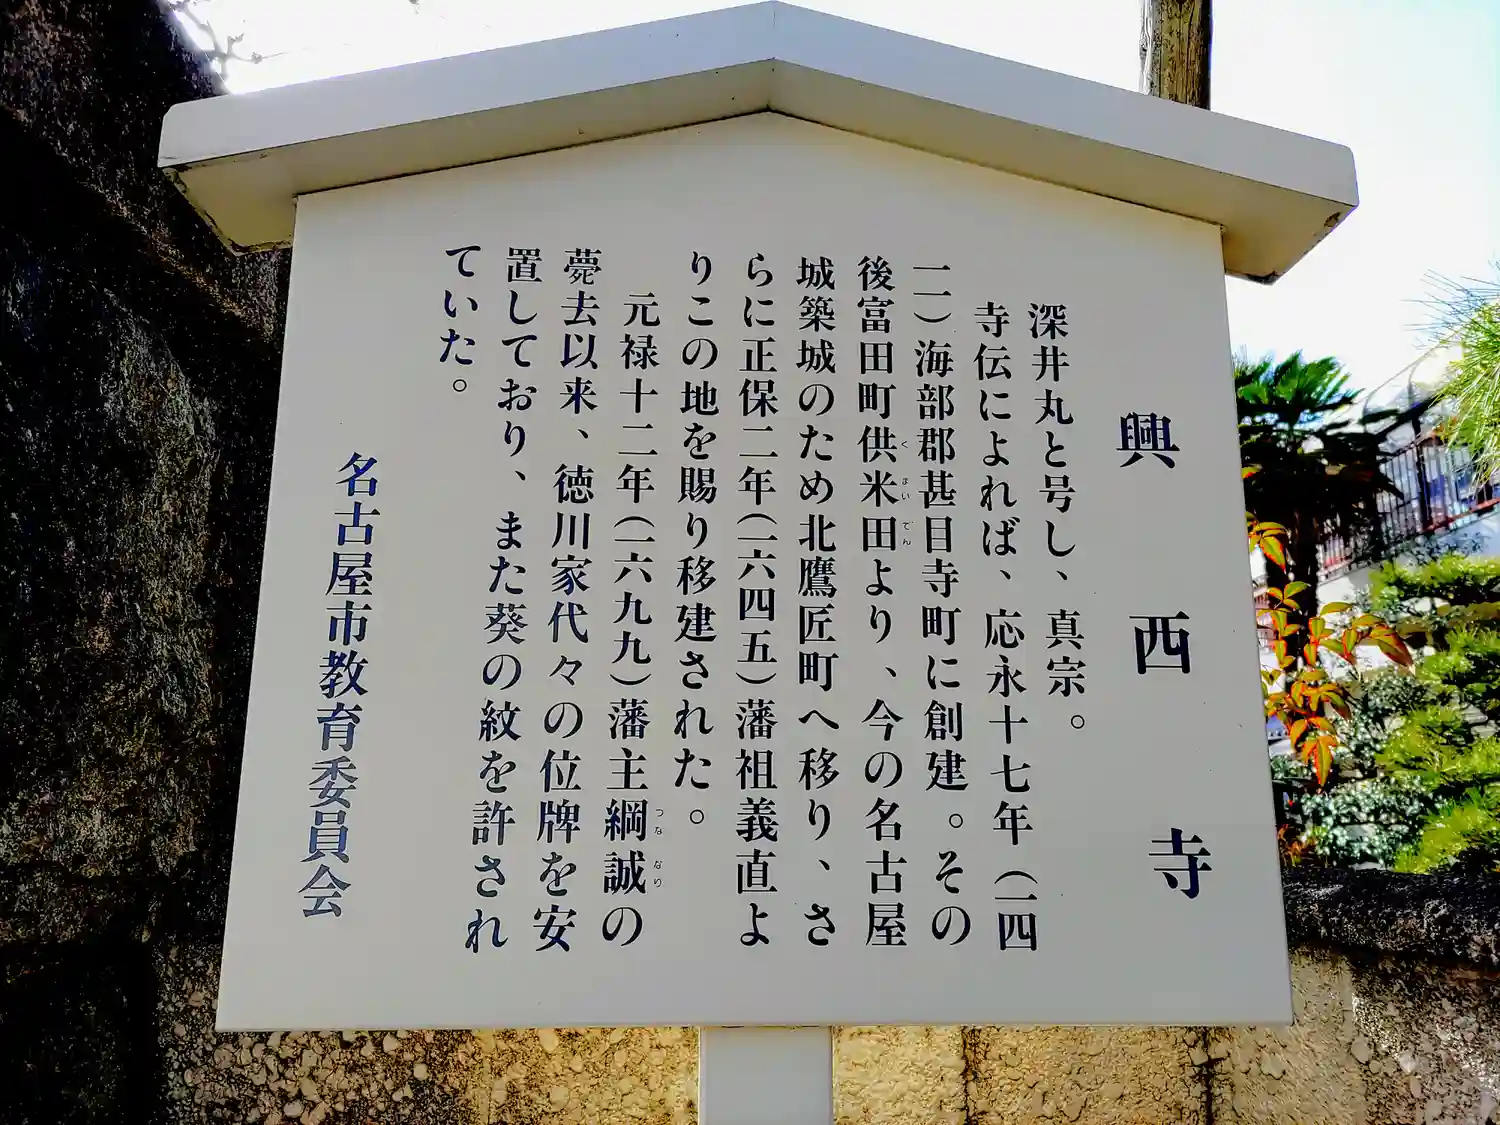 興西寺
深井丸と号し、真宗。
寺伝によれば、応永十七年(一四
一一)海部郡甚目寺町に創建。その
後富田町供米田より、今の名古屋
くまいでん
城築城のため北鷹匠町へ移り、さ
らに正保二年(一六四五)藩祖義直よ
りこの地を賜り移建された。
元禄十二年(一六九九)藩主綱誠の
つななり
薨去以来、徳川家代々の位牌を安
置しており、また葵の紋を許され
ていた。
名古屋市教育委員会